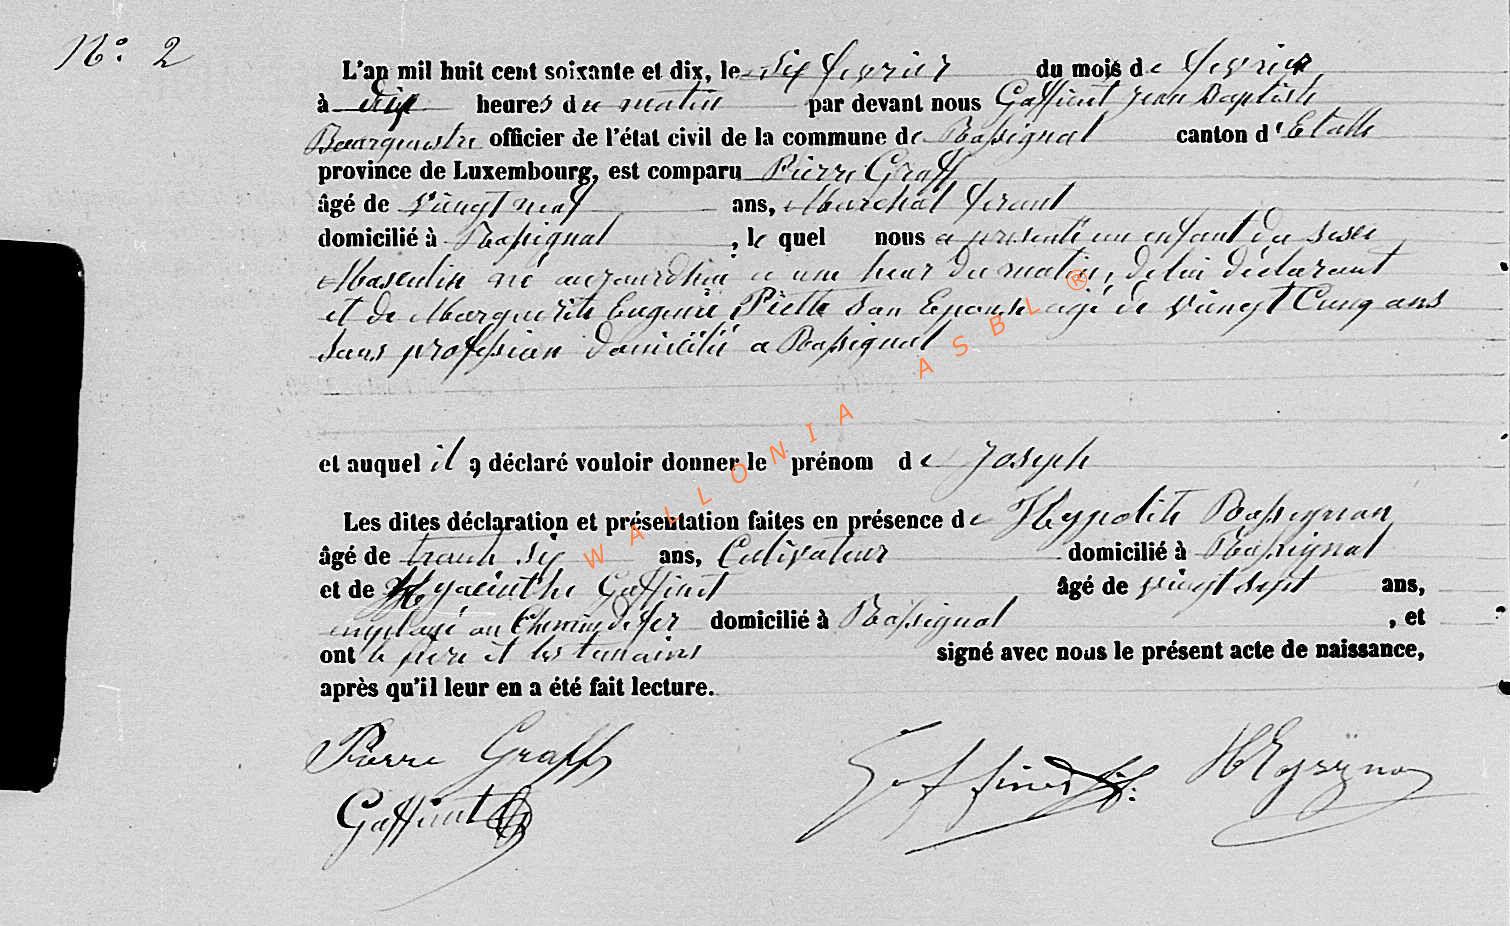 No: 2
L'an mil huit cent soixante et dix, le six fevrier du mois de fevrier
à dix heures du matin par devant nous Gaffinet Jean Baptiste
Bourguestre officier de l'état civil de la commune de Rossignol canton d'Etalle
province de Luxembourg, est comparu Pierre Graff
âgé de vingt neuf ans, Marchal ferant
domicilié à Rossignol, le quel nous a presenté un enfant du sexe
Masculin né aujourdhui a une heur du matin, de lui déclarant
et de Marguerite Eugenie Piette son Epouse agé de vingt Cinq ans
sans profession domicilié a Rossignol
et auquel il a déclaré vouloir donner le prénom de Joseph
Les dites déclaration et présentation faites en présence de Hyppolite Rossignon
âgé de trante six ans, Cultivateur domicilié à Rossignol
et de Hyacinthe Gaffinet âgé de vingt sept ans,
employé au Chemin de fer domicilié à Rossignol, et
ont le père et les temoins signé avec nous le présent acte de naissance,
après qu'il leur en a été fait lecture.
Pierre Graff
Gaffinet
WALLONIA ASBL ®